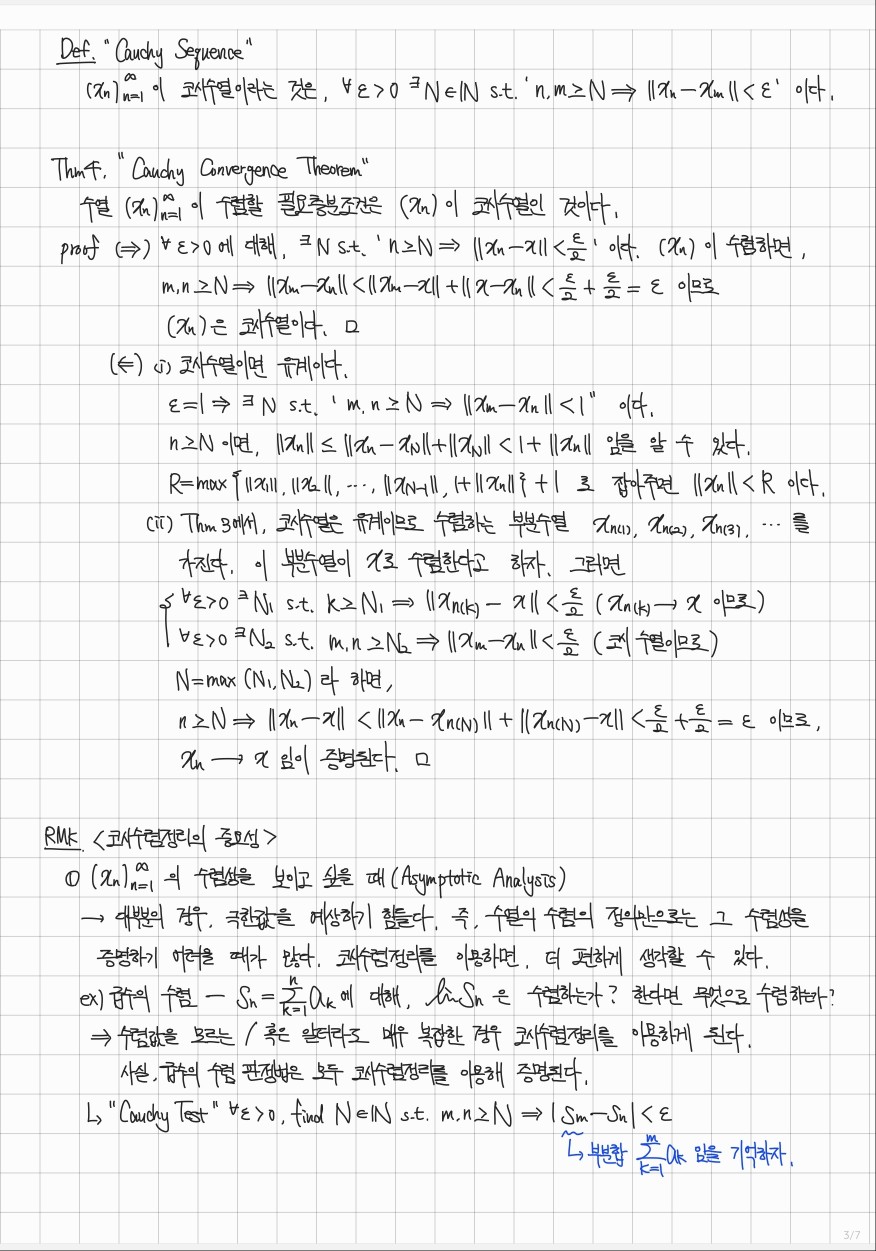 Def. "Cauchy Sequence"
(xₙ)ₙ₌₁^∞ 이 코시수열이라는 것은, ∀ε>0 ∃N∈ℕ s.t. 'n,m≥N ⟹ ||xₙ-xₘ||<ε' 이다.
Thm4. "Cauchy Convergence Theorem"
수열 (xₙ)ₙ₌₁^∞ 이 수렴할 필요충분조건은 (xₙ)이 코시수열인 것이다.
proof (⇒) ∀ε>0에 대해, ∃N s.t. 'n≥N ⟹ ||xₙ-x||<ε/2' 이다. (xₙ)이 수렴하면,
m,n≥N ⟹ ||xₘ-xₙ||<||xₘ-x||+||x-xₙ||<ε/2+ε/2=ε 이므로
(xₙ)은 코시수열이다. □
(⇐) (i) 코시수열이면 유계이다.
ε=1 ⇒ ∃N s.t. 'm,n≥N ⟹ ||xₘ-xₙ||<1" 이다.
n≥N 이면, ||xₙ|| ≤ ||xₙ-x_N||+||x_N|| < 1+||xₙ|| 임을 알 수 있다.
R=max{||x₁||, ||x₂||, ⋯, ||x_{N-1}||, 1+||xₙ||}+1 로 잡아주면 ||xₙ||<R 이다.
(ii) Thm 3에서, 코시수열은 유계이므로 수렴하는 부분수열 x_{n(1)}, x_{n(2)}, x_{n(3)}, ⋯ 를
가진다. 이 부분수열이 x로 수렴한다고 하자. 그러면
∀ε>0 ∃N₁ s.t. k≥N₁ ⟹ ||x_{n(k)}-x||<ε/2 (x_{n(k)}→x 이므로)
∀ε>0 ∃N₂ s.t. m,n≥N₂ ⟹ ||xₘ-xₙ||<ε/2 (코시수열이므로)
N=max(N₁,N₂)라 하면,
n≥N ⟹ ||xₙ-x|| < ||xₙ-x_{n(N)}||+||x_{n(N)}-x||<ε/2+ε/2=ε 이므로,
xₙ⟶x 임이 증명된다. □
RMK. <코시수렴정리의 중요성>
① (xₙ)ₙ₌₁^∞ 의 수렴성을 보이고 싶을 때 (Asymptotic Analysis)
→ 대부분의 경우, 극한값을 예상하기 힘들다. 즉, 수열의 수렴의 정의만으로는 그 수렴성을
증명하기 어려울 때가 많다. 코시수렴정리를 이용하면, 더 편하게 생각할 수 있다.
ex) 급수의 수렴 — Sₙ=∑_{k=1}^{n} aₖ에 대해, lim Sₙ은 수렴하는가? 한다면 무엇으로 수렴하는가?
⇒ 수렴값을 모르는 / 혹은 알더라도 매우 복잡한 경우 코시수렴정리를 이용하게 된다.
사실, 급수의 수렴 판정법은 모두 코시수렴정리를 이용해 증명된다.
↳ "Cauchy Test" ∀ε>0, find N∈ℕ s.t. m,n≥N ⟹ |Sₘ-Sₙ|<ε
↳ 부분합 ∑_{k=1}^{m} aₖ 임을 기억하자.
3/7